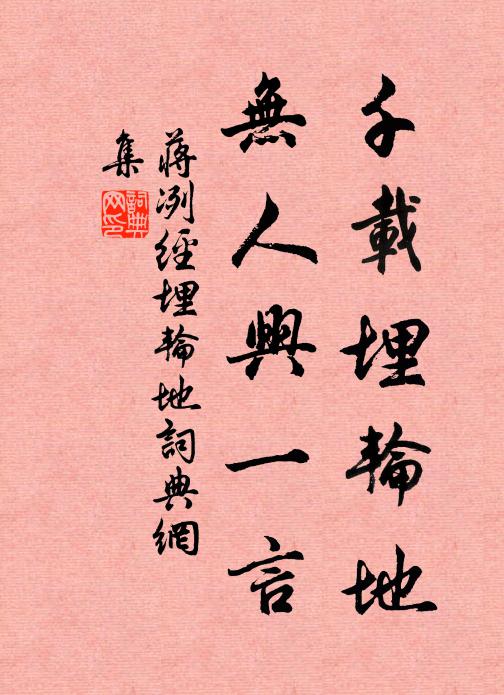 千載埋輪地
無人興一言
蔣冽經埋輪地詞典網
集
詞典網印